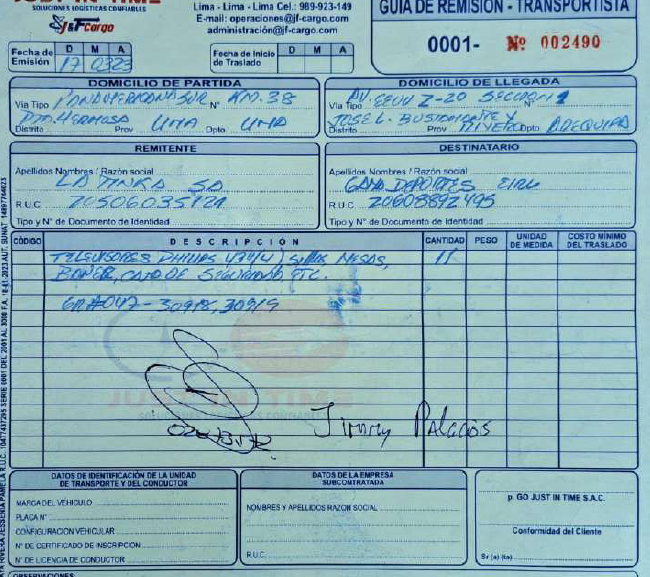 JUST IN TIME
SOLUCIONES LOGISTICAS CONFIABLES
J&F Cargo
Lima - Lima - Lima Cel.: 989-923-149
E-mail: operaciones@jf-cargo.com
administración@jf-cargo.com
GUIA DE REMISIÓN - TRANSPORTISTA
0001- Nº 002490
Fecha de Emisión D M A
17 0323
Fecha de Inicio de Traslado D M A
DOMICILIO DE PARTIDA
Via Tipo PANAMERICANA SUR Nº KM.38
Pta. HERMOSA LIMA LIMA
Distrito Prov Dpto
DOMICILIO DE LLEGADA
Via Tipo AV. EEUU Z-20 SECCION 1
JOSE L. BUSTAMANTE Y RIVERO AREQUIPA
Distrito Prov Dpto
REMITENTE
Apellidos Nombres / Razón social
LA TINKA SA
R.U.C. 20506035121
Tipo y N° de Documento de Identidad
DESTINATARIO
Apellidos Nombres / Razón social
GAMA DEPORTES EIRL
R.U.C. 20608892495
Tipo y N° de Documento de Identidad
CÓDIGO DESCRIPCION CANTIDAD PESO UNIDAD DE MEDIDA COSTO MÍNIMO DEL TRASLADO
TELEVISORES PHILIPS SILLAS MESAS, 11
BANER, CAJA DE SEGURIDAD, ETC.
30918, 30919
JUST IN TIME
Jimmy Palacios
DATOS DE IDENTIFICACIÓN DE LA UNIDAD DE TRANSPORTE Y DEL CONDUCTOR
MARCA DEL VEHICULO
PLACA N°
CONFIGURACION VEHICULAR
N° DE CERTIFICADO DE INSCRIPCION
N° DE LICENCIA DE CONDUCTOR
DATOS DE LA EMPRESA SUBCONTRATADA
NOMBRES Y APELLIDOS RAZON SOCIAL
R.U.C.
p. GO JUST IN TIME S.A.C.
Conformidad del Cliente
Sr (a) (ta)
OBSERVACIONES